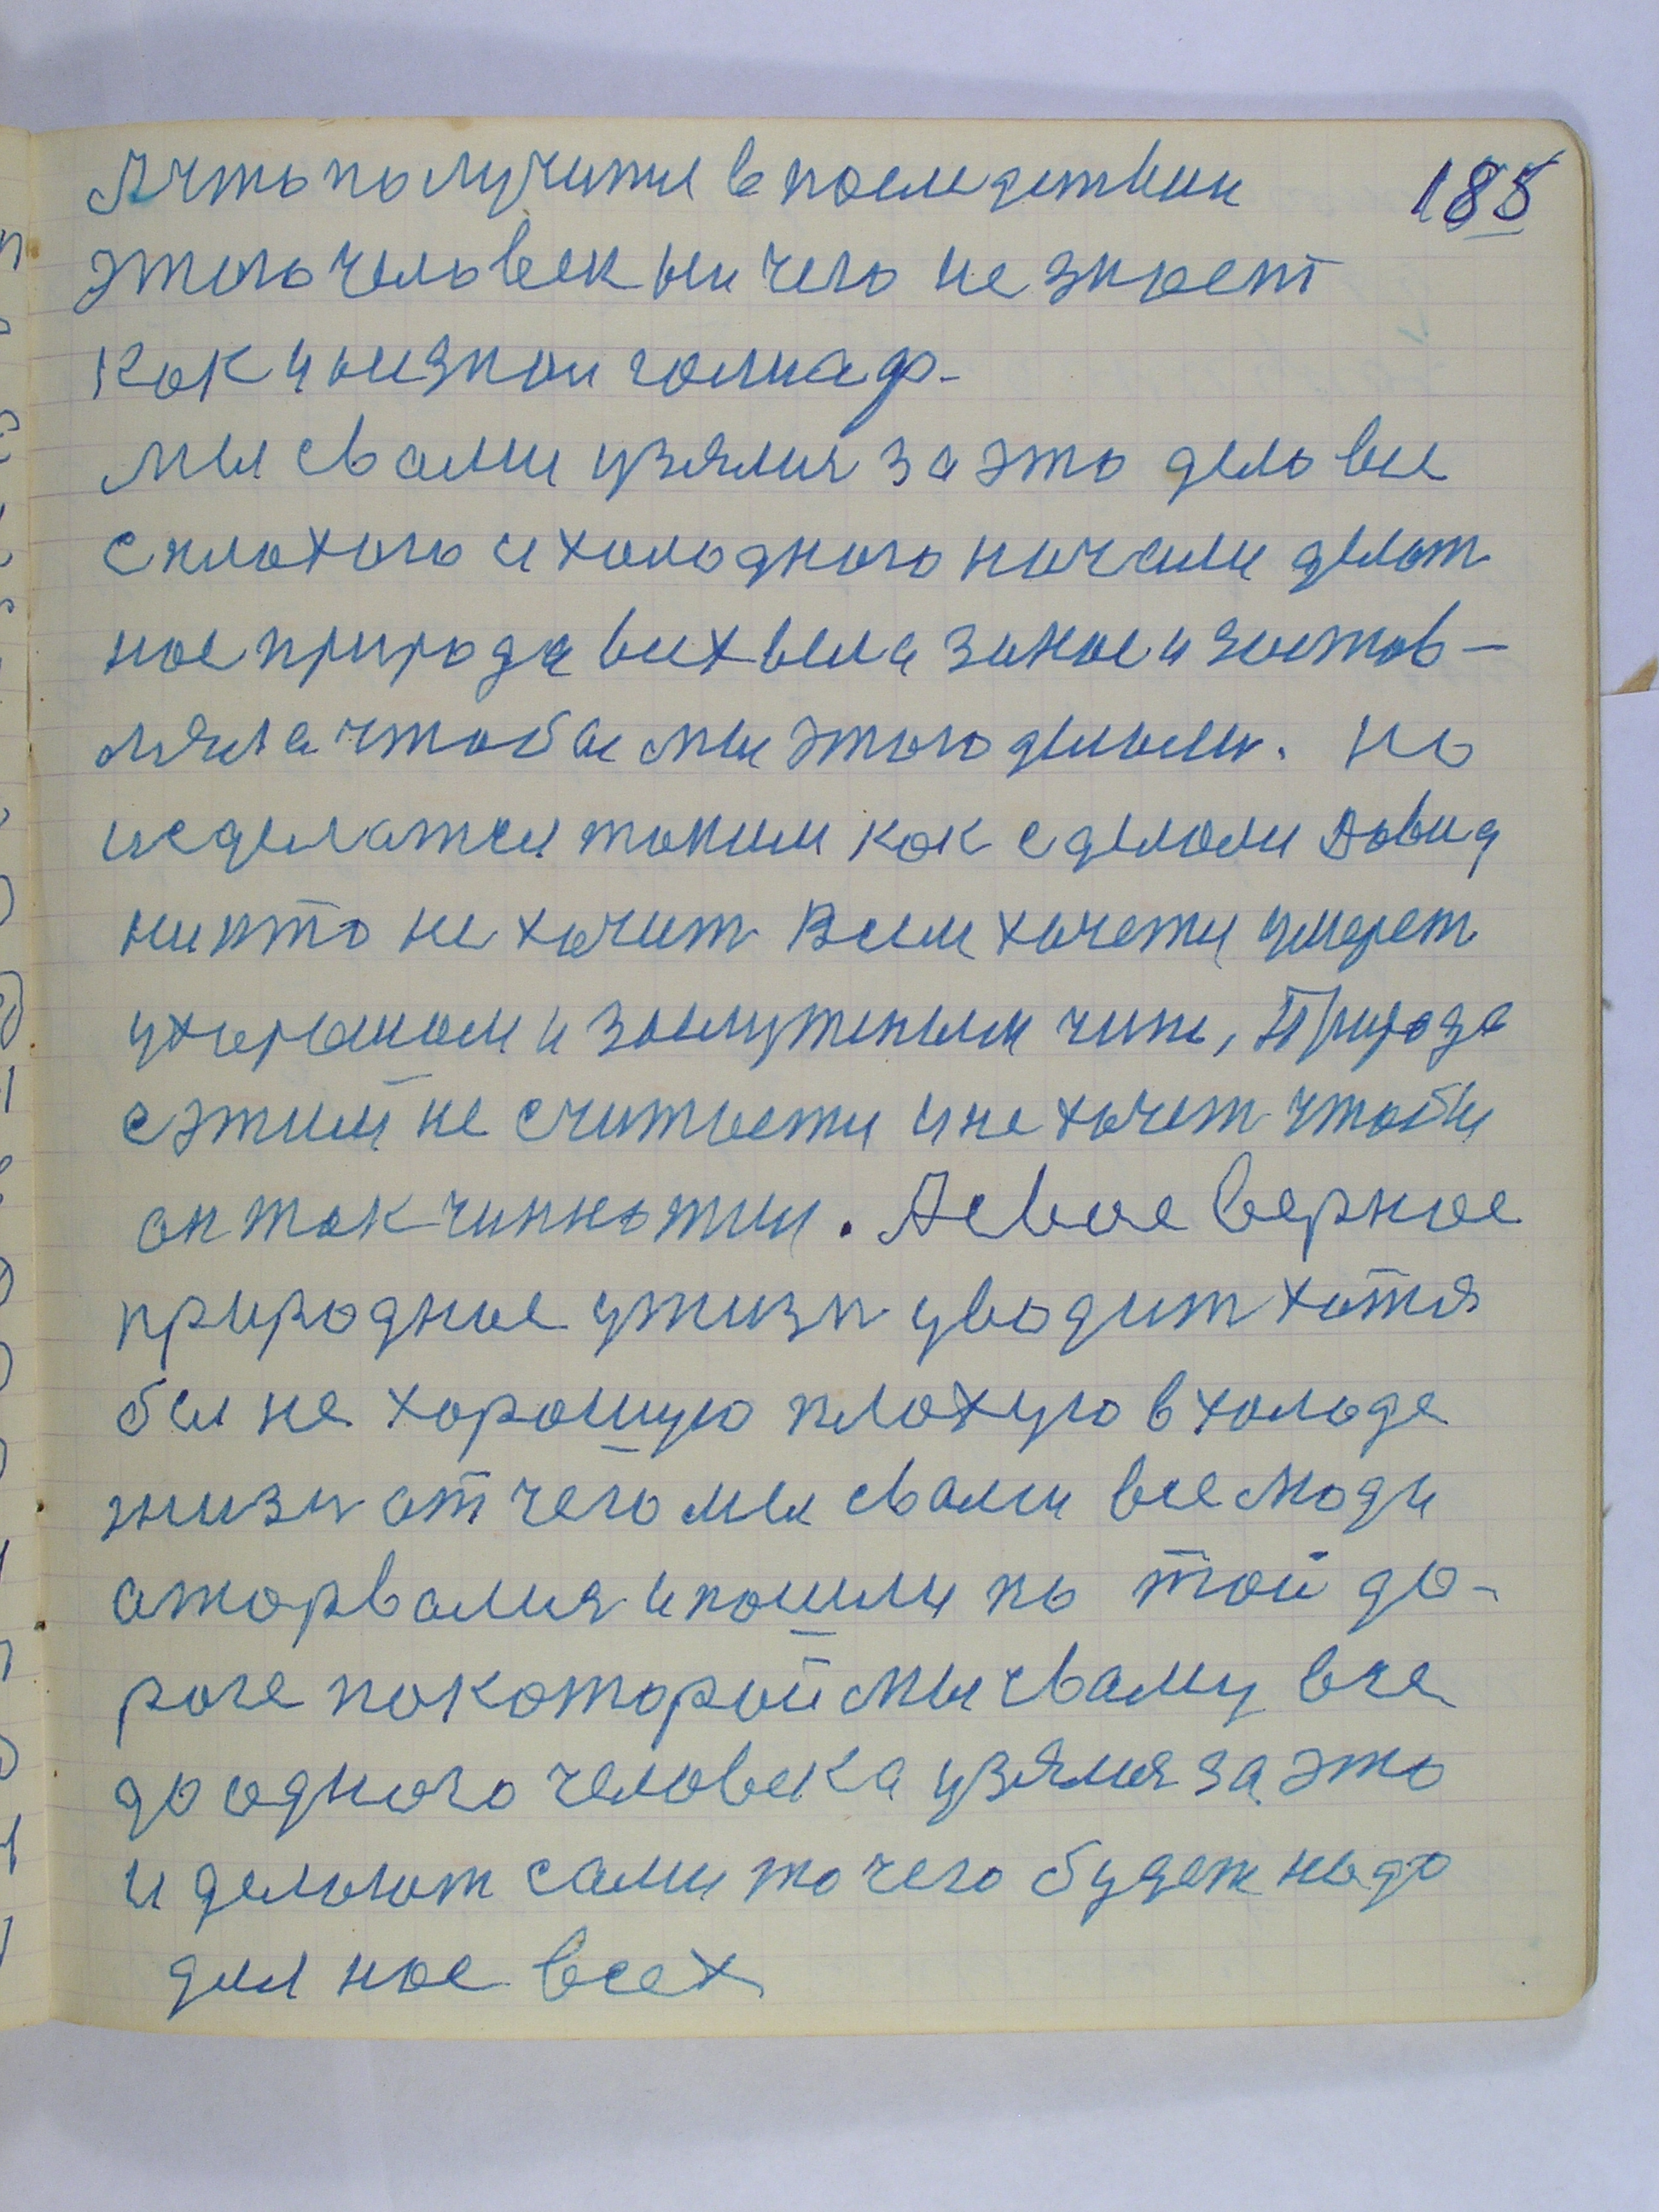 А что получитця в последствии 185
этого человек ни чего не знает
как и незнал голиаф-
мы свами узялися за это дело все
с плохого и холодного начали делат
нас природа в их вела за нас и застав-
ляла чтобы мы этого делали. но
исделатся таким как сделали Давид
никто не хочит Всем хочетця умерет
ухораном и заслуженым чине, Природа
сэтим не считается ине хочет чтобы
он так чинно жил. А свое верное
природное ужизн уводит хотя
бы не хорошую плохую в холоде
жизн от чего мы свами все люди
аторвалися и пошли по той до-
роге покоторой мы свами все
до одного человека узялися за это
и делают сами то чего будет надо
для нас всех